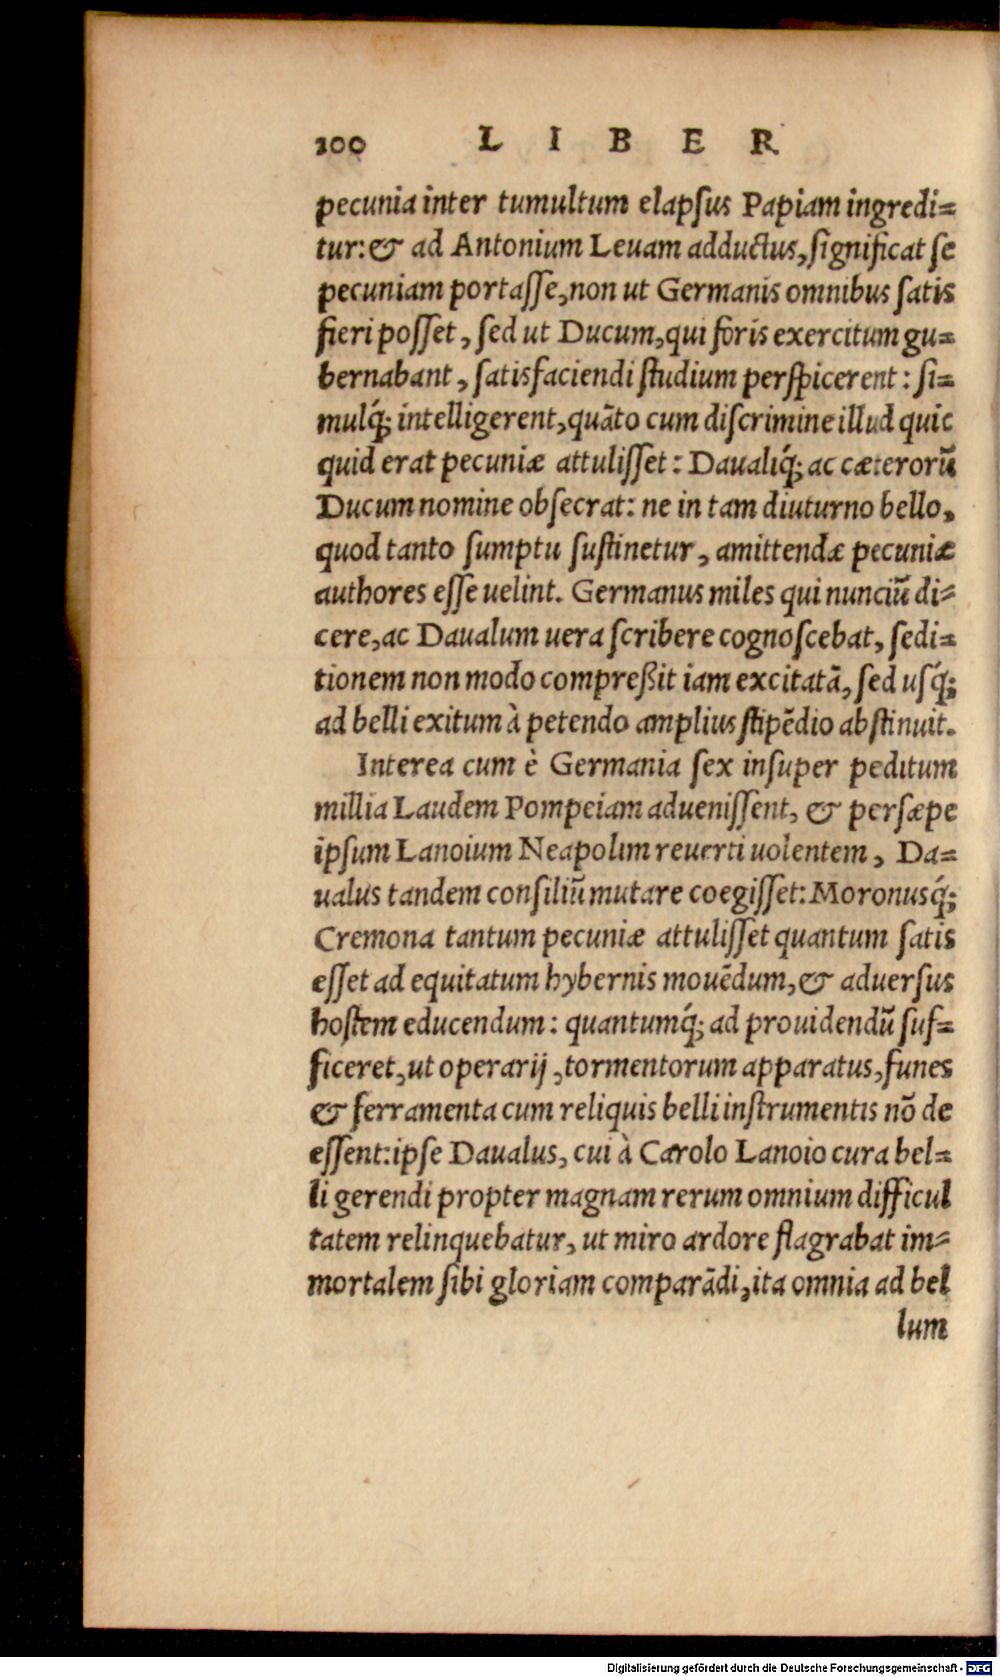 100 L I B E R
pecunia inter tumultum elapſus Papiam ingredi=
tur: & ad Antonium Leuam adductus, ſignificat ſe
pecuniam portaſſe, non ut Germanis omnibus ſatis
fieri poſſet, ſed ut Ducum, qui foris exercitum gu=
bernabant, ſatisfaciendi ſtudium perſpicerent: ſi=
mulq́; intelligerent, quãto cum diſcrimine illud quic
quid erat pecuniæ attuliſſet: Daualiq́; ac cæterorũ
Ducum nomine obſecrat: ne in tam diuturno bello,
quod tanto ſumptu ſuſtinetur, amittendæ pecuniæ
authores eſſe uelint. Germanus miles qui nunciũ di=
cere, ac Daualum uera ſcribere cognoſcebat, ſedi=
tionem non modo compreßit iam excitatã, ſed uſq́;
ad belli exitum à petendo amplius ſtipẽdio abſtinuit.
Interea cum è Germania ſex inſuper peditum
millia Laudem Pompeiam adueniſſent, & perſæpe
ipſum Lanoium Neapolim reuerti uolentem, Da=
ualus tandem conſiliũ mutare coegiſſet: Moronusq́;
Cremona tantum pecuniæ attuliſſet quantum ſatis
eſſet ad equitatum hybernis mouẽdum, & aduerſus
hoſtem educendum: quantumq́; ad prouidendũ ſuf=
ficeret, ut operarij, tormentorum apparatus, funes
& ferramenta cum reliquis belli inſtrumentis nõ de
eſſent: ipſe Daualus, cui à Carolo Lanoio cura bel=
li gerendi propter magnam rerum omnium difficul
tatem relinquebatur, ut miro ardore flagrabat im=
mortalem ſibi gloriam comparãdi, ita omnia ad bel
lum
Digitalisierung gefördert durch die Deutsche Forschungsgemeinschaft - DFG